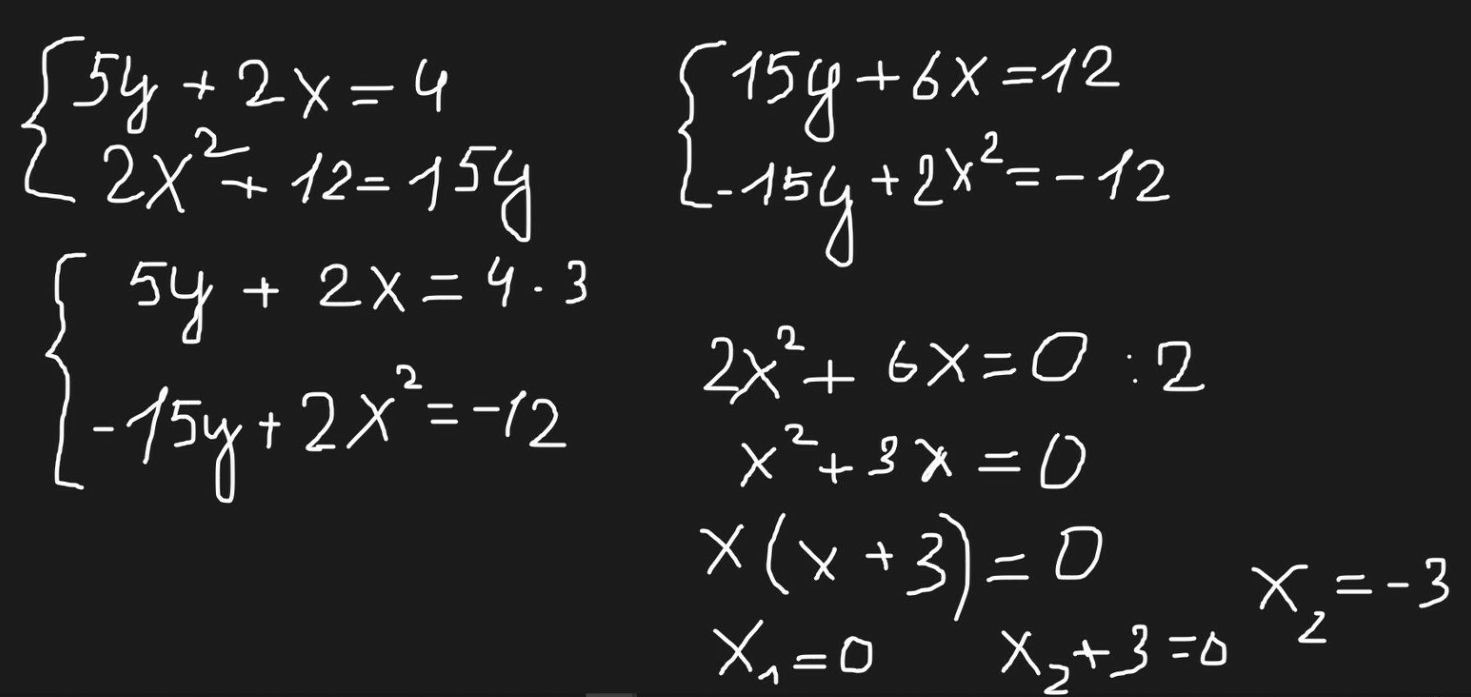 5y + 2x = 4
2x² + 12 = 15y
5y + 2x = 4 · 3
-15y + 2x² = -12
15y + 6x = 12
-15y + 2x² = -12
2x² + 6x = 0 : 2
x² + 3x = 0
x(x + 3) = 0
x₁ = 0 x₂ + 3 = 0 x₂ = -3